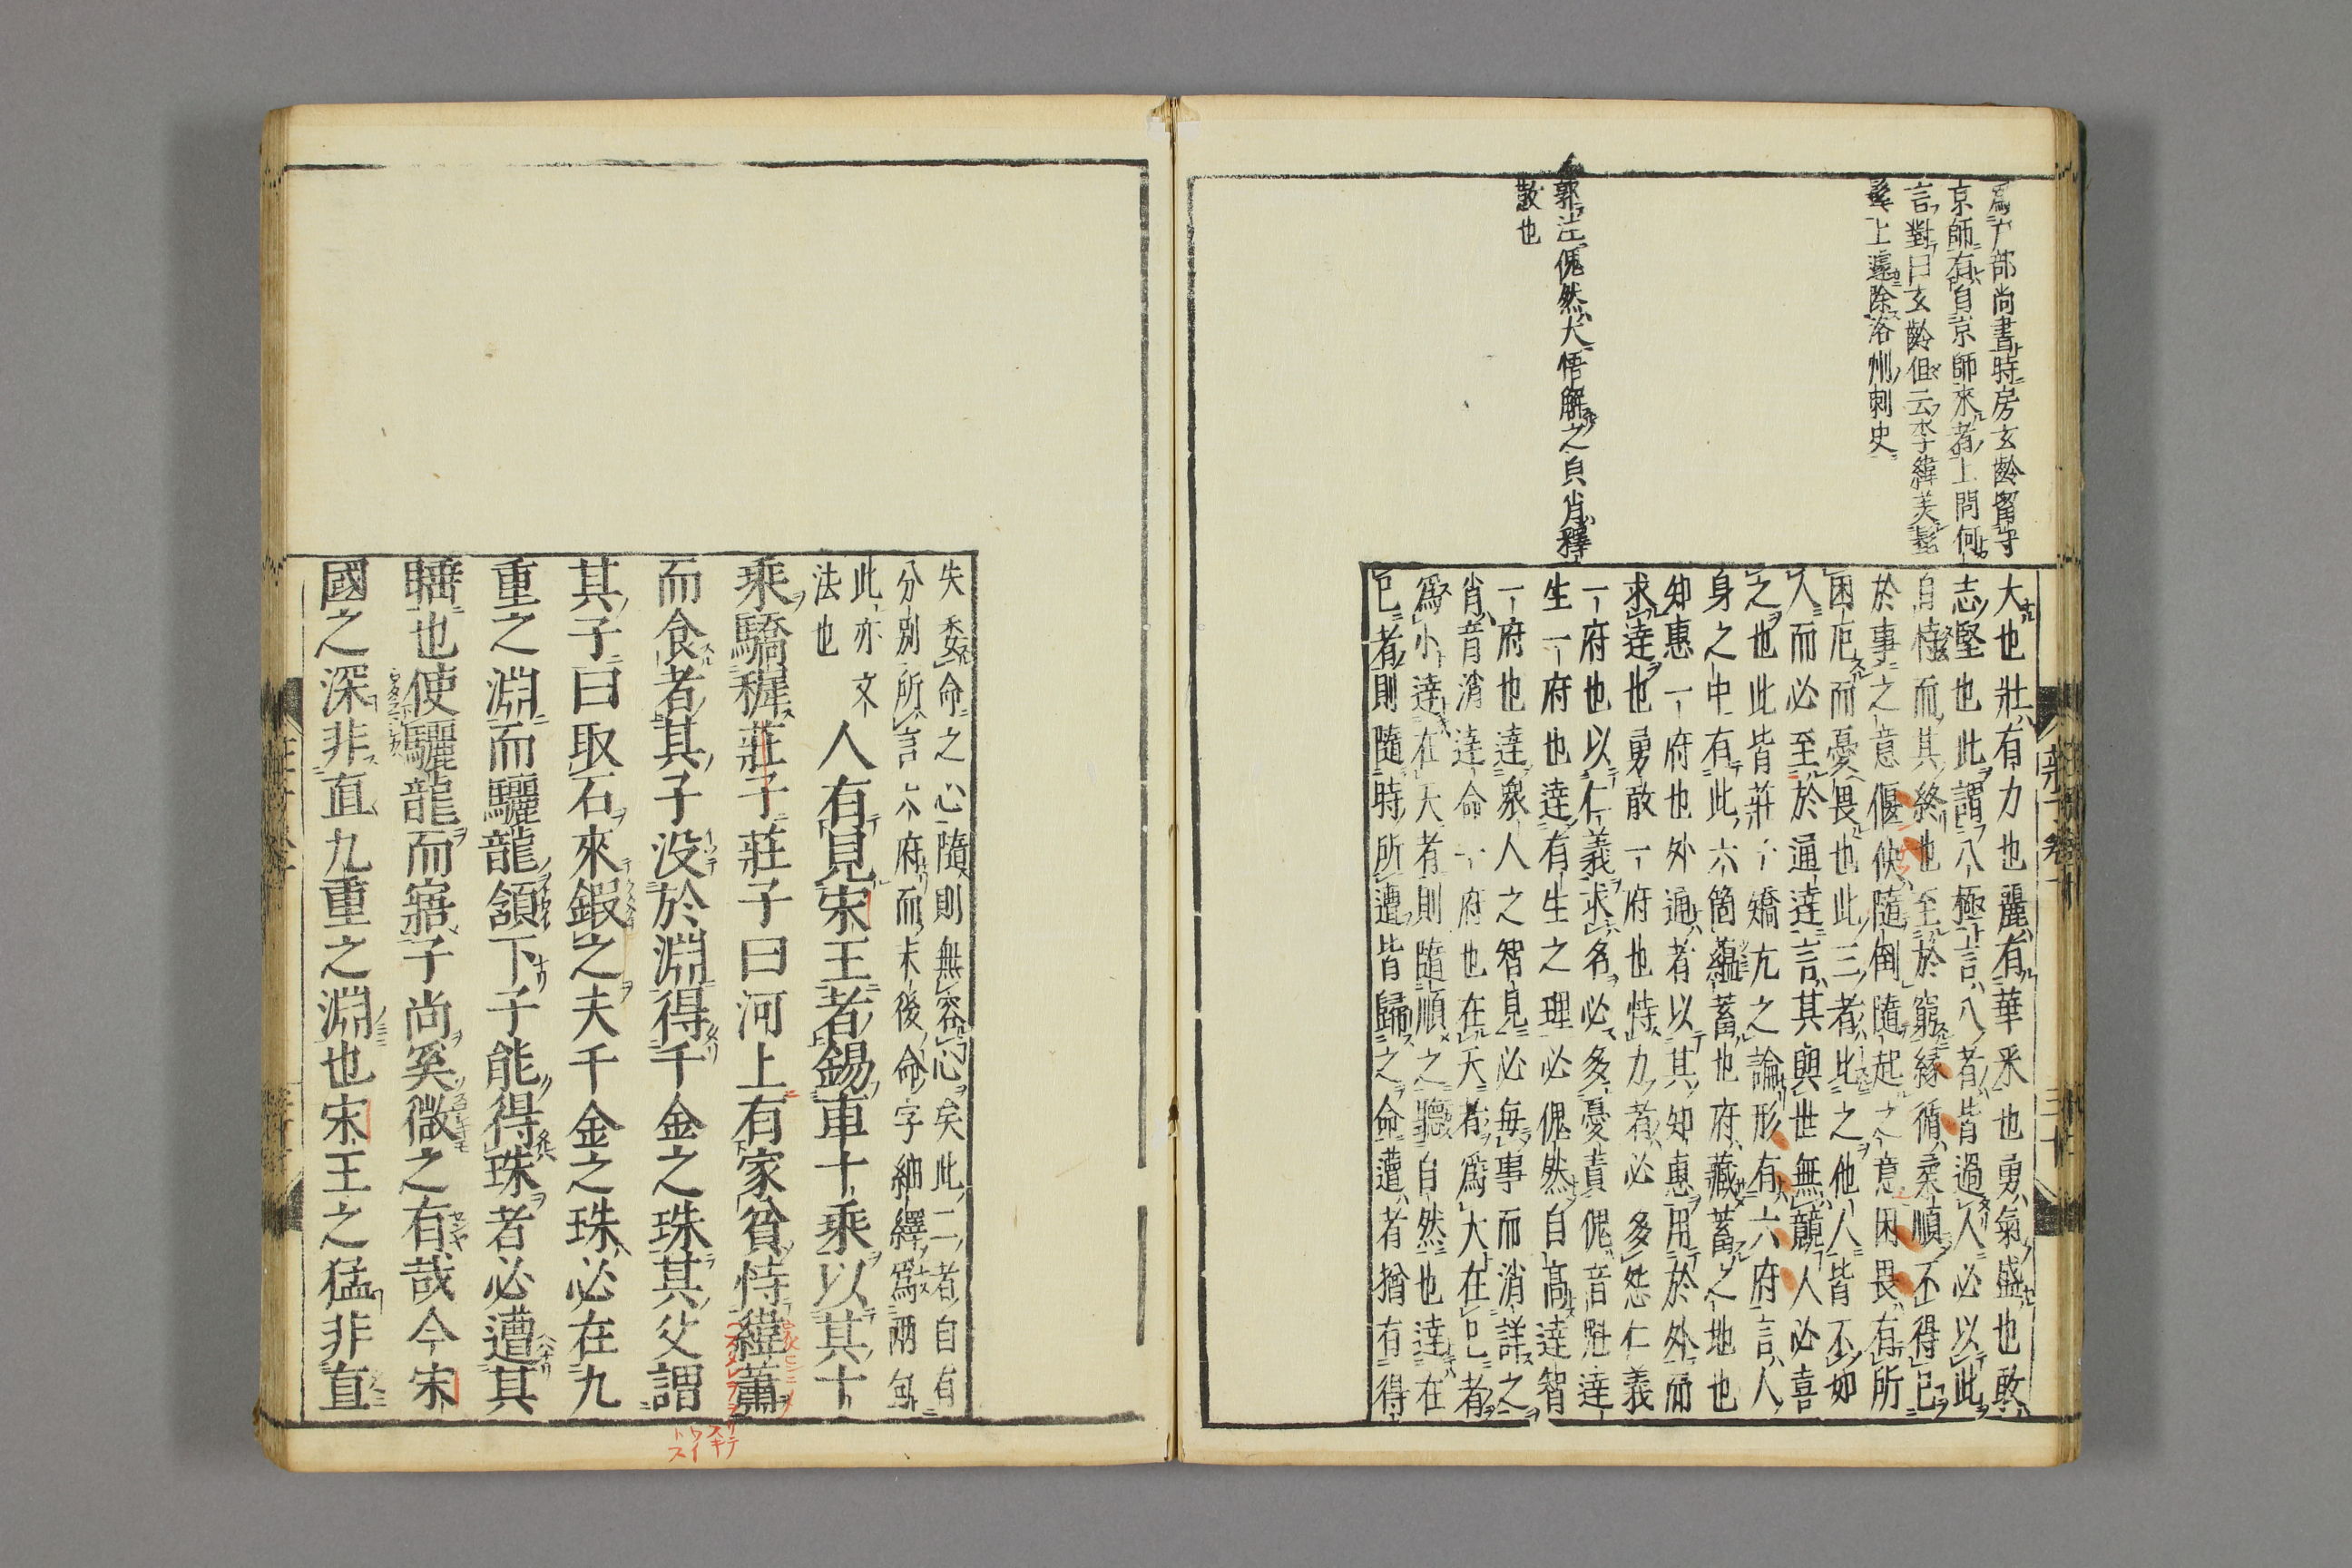 爲戸部尚書時房玄齡留守
京師有自京師來者上問何
言對曰玄齡但云李緯美髭
髯上遽除洛州刺史
郭注傀然大悟解之皃肖釋
散也
大也壯有力也麗有華釆也勇氣盛也敢
志堅也此謂八極言八者皆過人必以此
自恃而其終也至於窮緣循柔順不得已
於事之意偃佒隨倒隨起之意困畏有所
困厄而憂畏也此三者比之他人皆不如
人而必至於通達言其與世無競人必喜
之也此皆莊子矯亢之論形有六府言人
身之中有此六箇蘊蓄也府藏蓄之地也
知惠一府也外通者以其知惠用於外而
求達也勇敢一府也恃力者必多怨仁義
一府也以仁義求名必多憂責傀音魁達
生一府也達有生之理必傀然自高達智
一府也達衆人之智見必每事而消詳之
肖音消達命一府也在天者爲大在己者
爲小達在大者則隨順之聽自然也達在
己者則隨時所遭皆歸之命遭者猶有得
莊子卷十
三十
失委命之心隨則無容心矣此二者自有
分別所言六府而末後命字紬繹爲兩句
此亦文
法也
人有見宋王者錫車十乘以其十
乘驕穉莊子莊子曰河上有家貧恃緯蕭
而食者其子没於淵得千金之珠其父謂
其子曰取石來鍜之夫千金之珠必在九
重之淵而驪龍頷下子能得珠者必遭其
睡也使驪龍而寤子尚奚微之有哉今宋
國之深非直九重之淵也宋王之猛非直